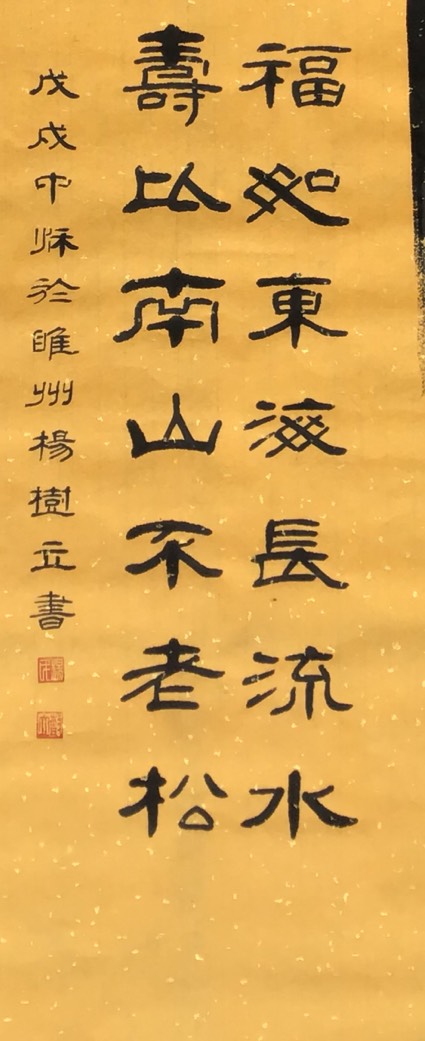 福如東海長流水
壽以南山不老松
戊戌中秋於睢州楊樹立書